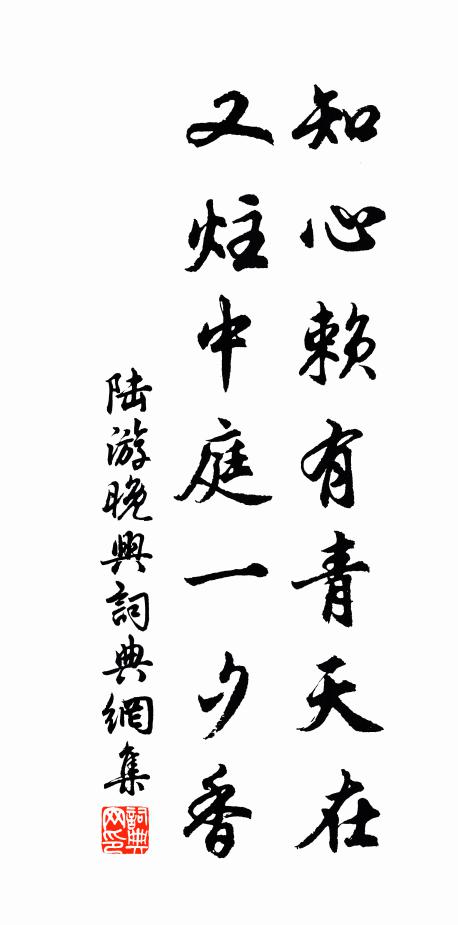 知心赖有青天在
又炷中庭一夕香
陆游晚興詞典網集
詞典网印